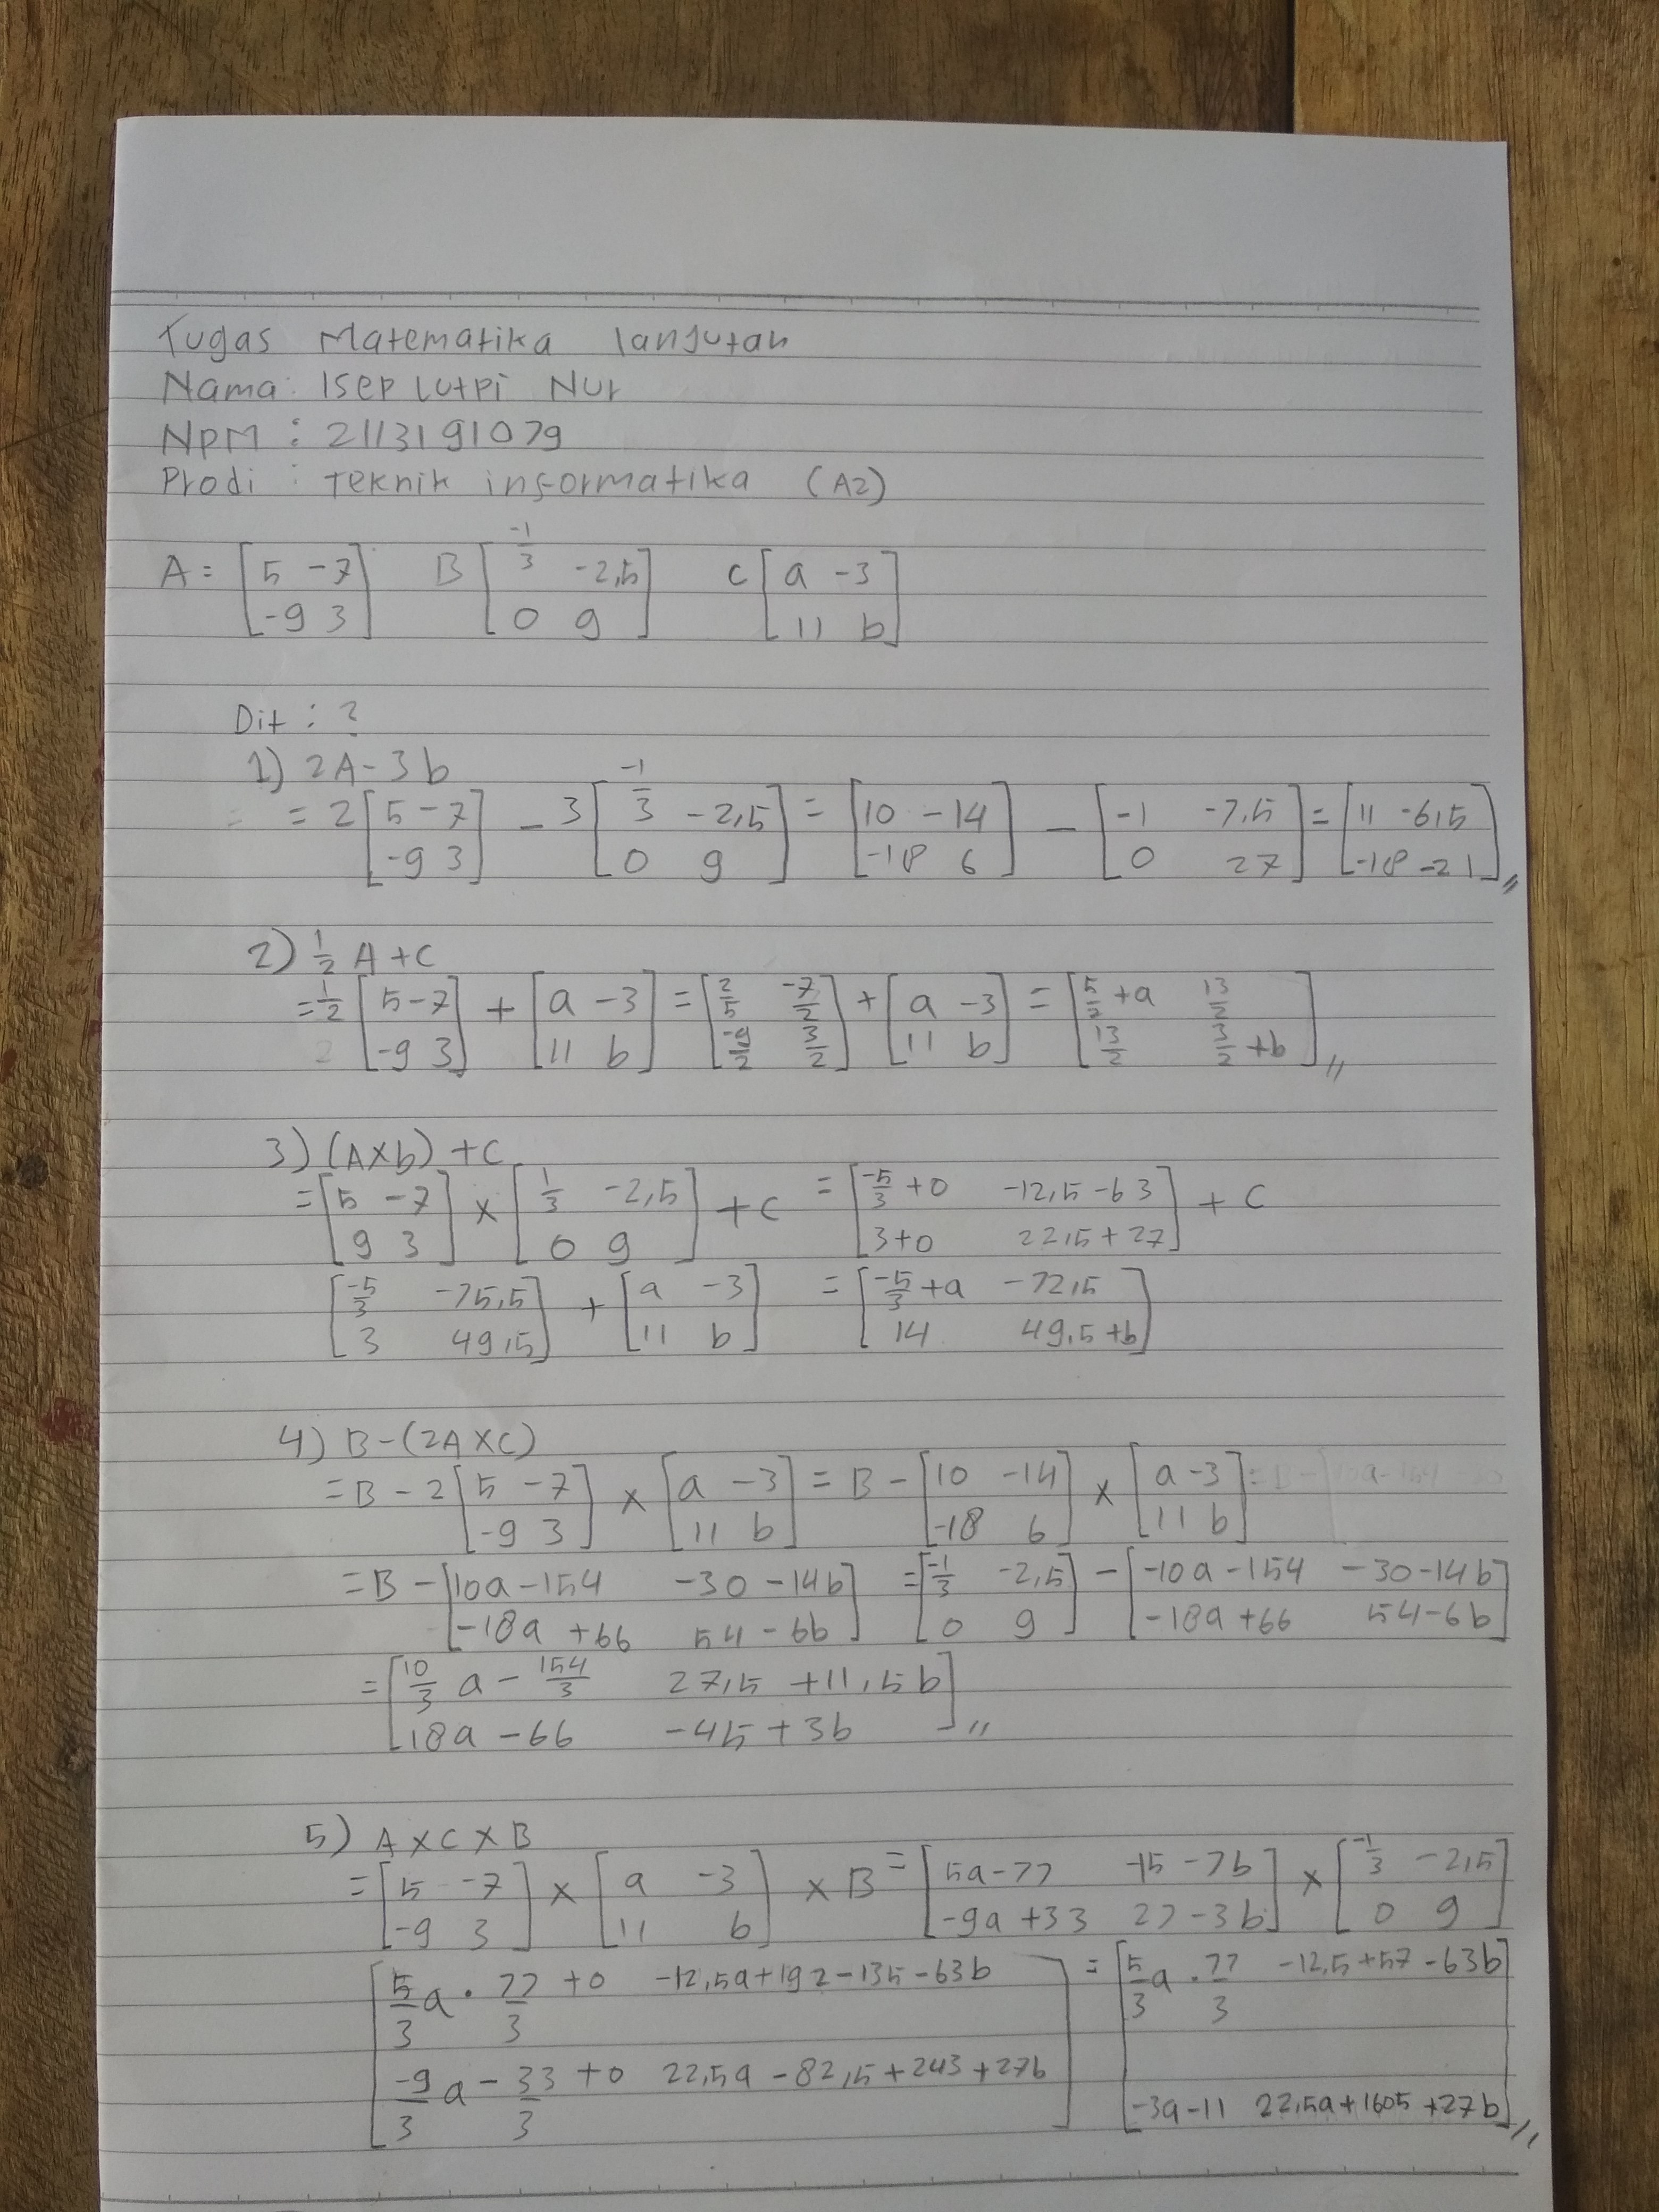 Tugas Matematika lanjutan
Nama : Isep lutpi Nur
NPM : 2113191079
Prodi : Teknik informatika (A2)
A = [5 -7; -9 3] B [-1/3 -2,5; 0 9] C [a -3; 11 b]
Dit : ?
1) 2A - 3b
= 2 [5 -7; -9 3] - 3 [-1/3 -2,5; 0 9] = [10 -14; -18 6] - [-1 -7,5; 0 27] = [11 -6,5; -18 -21] //
2) 1/2 A + C
= 1/2 [5 -7; -9 3] + [a -3; 11 b] = [2/5 -7/2; -9/2 3/2] + [a -3; 11 b] = [5/2 + a 13/2; 13/2 3/2 + b] //
3) (A x b) + C
= [5 -7; 9 3] x [1/3 -2,5; 0 9] + C = [-5/3 + 0 -12,5 - 63; 3 + 0 22,5 + 27] + C
[-5/3 -75,5; 3 49,5] + [a -3; 11 b] = [-5/3 + a -72,5; 14 49,5 + b]
4) B - (2A x C)
= B - 2 [5 -7; -9 3] x [a -3; 11 b] = B - [10 -14; -18 6] x [a -3; 11 b]
= B - [10a - 154 -30 - 14b; -18a + 66 54 - 6b] = [-1/3 -2,5; 0 9] - [-10a - 154 -30 - 14b; -18a + 66 54 - 6b]
= [10/3 a - 154/3 27,5 + 11,5b; 18a - 66 -45 + 3b] //
5) A x C x B
= [5 -7; -9 3] x [a -3; 11 b] x B = [5a - 77 -15 - 7b; -9a + 33 27 - 3b] x [-1/3 -2,5; 0 9]
[5/3 a . 77/3 + 0 -12,5a + 192 - 135 - 63b; -9/3 a - 33/3 + 0 22,5a - 82,5 + 243 + 27b] = [5/3 a . 77/3 -12,5 + 57 - 63b; -3a - 11 22,5a + 1605 + 27b] //